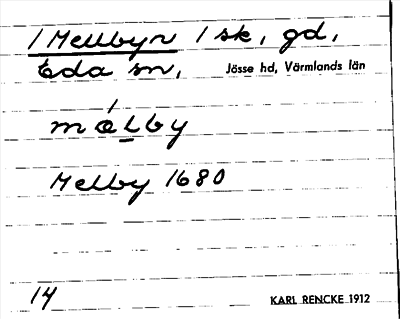 / Mellbyn / sk, gd,
Eda sn, Jösse hd, Värmlands län
mælby
Melby 1680
14 KARL RENCKE 1912